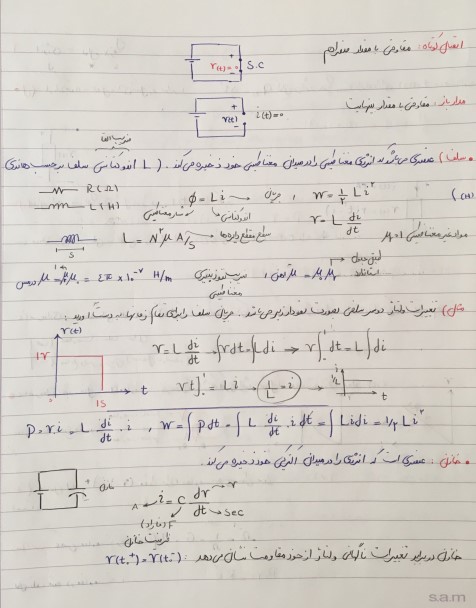 اتصال کوتاه: مقاومتی با مقدار صفر اهم
v(t)=0 S.C
مدار باز: مقاومتی با مقدار بینهایت
v(t) i(t)=0
• سلف) عنصری می‌باشد که انرژی مغناطیسی را در میدان مغناطیسی خود ذخیره می‌کند. (L اندوکتانس سلف برحسب هانری
(H)
R(Ω)
L(H)
φ = Li → جریان , W = ½ Li²
اندوکتانس
شار مغناطیسی
v = L di/dt
L = N²μ A/s → سطح مقطع
s
مواد غیر مغناطیسی μr=1
μ = μ₀μr
μ₀ = 4π × 10⁻⁷ H/m
ضریب نفوذپذیری مغناطیسی
مثال) تغییرات ولتاژ دو سر سلفی بصورت نمودار زیر می‌باشد. جریان سلف را برای تمام زمانها بدست آورید:
v(t)
1v
1s t
v = L di/dt → ∫vdt = ∫Ldi → v∫₀¹dt = L∫di
vt]₀¹ = Li → 1/L = i
i 1/L t
P = v.i = L di/dt . i , W = ∫Pdt = ∫L di/dt . i dt = ∫Lidi = 1/2 Li²
• خازن: عنصری است که انرژی را در میدان الکتریکی خود ذخیره می‌کند.
خازن
A ← i = C dv/dt → v
→ sec
F (فاراد)
ظرفیت خازن
خازن در برابر تغییرات ناگهانی ولتاژ از خود مقاومت نشان می‌دهد: v(t₀⁺) = v(t₀⁻)
s.a.m